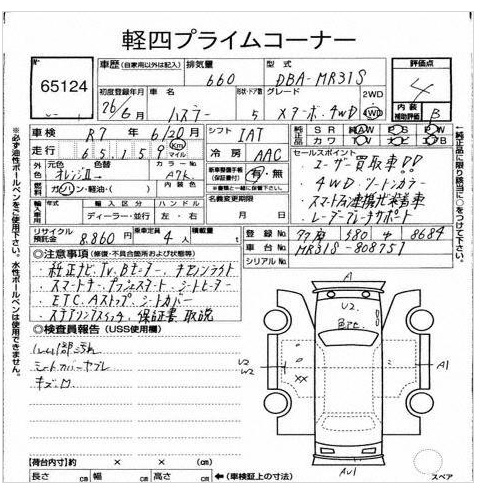 軽四プライムコーナー
65124
車歴 (自家用以外は記入)
排気量
660
型式
DBA-MR31S
評価点
4
初度登録年月
26/6月
車名
ハスラー
形状・ドア数
5
グレード
Xターボ. 4WD
2WD
4WD
内装
補助評価
B
車検
R7年6/20月
シフト
IAT
純正品
SR AW PS PW
カワ TV ナビ エアB
走行
65,159
Km
マイル
冷房
AAC
セールスポイント
・ユーザー買取車!!
・4WD. シートカラー
・スマトフォン連携ナビ装着車
・レーダーブレーキサポート
外色
元色
オレンジII→
色替
カラーNo.
A7K
燃料
ガソリン・軽油・( )
内装色
新車整備手帳
(保証書付)
有・無
輸入車
輸入区分
ハンドル
ディーラー・並行
左・右
名義変更期限
月 日
リサイクル預託金
8,860円
乗車定員
4人
積載量
t
登録No.
580
8684
車台No.
MR31S-808751
シリアルNo.
◎注意事項 (修復・不具合箇所および状態等)
・純正ナビ. TV. Bモニター. ナビソンライト
・スマートキー. プッシュスタート. シートヒーター
・ETC. Aストップ. シートカバー
・ステアリングスイッチ. 保証書. 取説
◎検査員報告 (USS使用欄)
シートカバーヤブレ
キズ.
A
U2
XX
U2
W2
A1
AU1
スペア
【荷台内寸】約 × × (cm)
長さ cm 幅 cm 高さ cm ←(車検証上の寸法)
※必ず油性ボールペンをご使用下さい。水性ボールペンは使用できません。
※純正品に限り該当に○をつけて下さい。